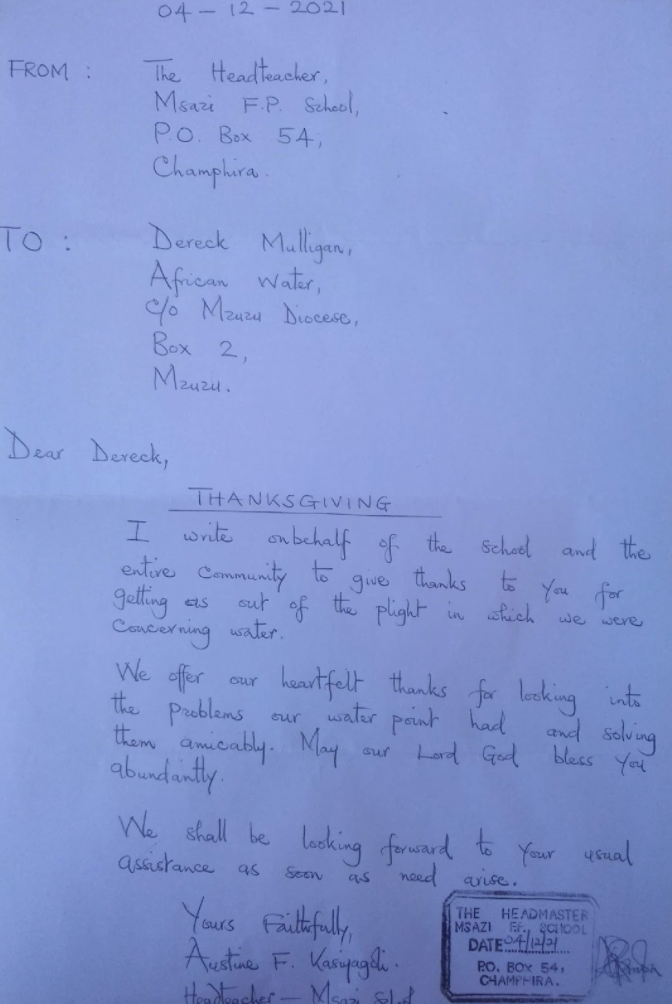 04 - 12 - 2021
FROM : The Headteacher,
Msazi F.P. School,
P.O. Box 54,
Champhira.
TO : Dereck Mulligan,
African Water,
c/o Mzuzu Diocese,
Box 2,
Mzuzu.
Dear Dereck,
THANKSGIVING
I write onbehalf of the school and the
entire community to give thanks to you for
getting us out of the plight in which we were
concerning water.
We offer our heartfelt thanks for looking into
the problems our water point had and solving
them amicably. May our Lord God bless you
abundantly.
We shall be looking forward to your usual
assistance as soon as need arise.
Yours Faithfully,
Austine F.
Headteacher - Msazi
THE HEADMASTER
MSAZI F.P. SCHOOL
DATE 04/12/21
P.O. BOX 54,
CHAMPHIRA.